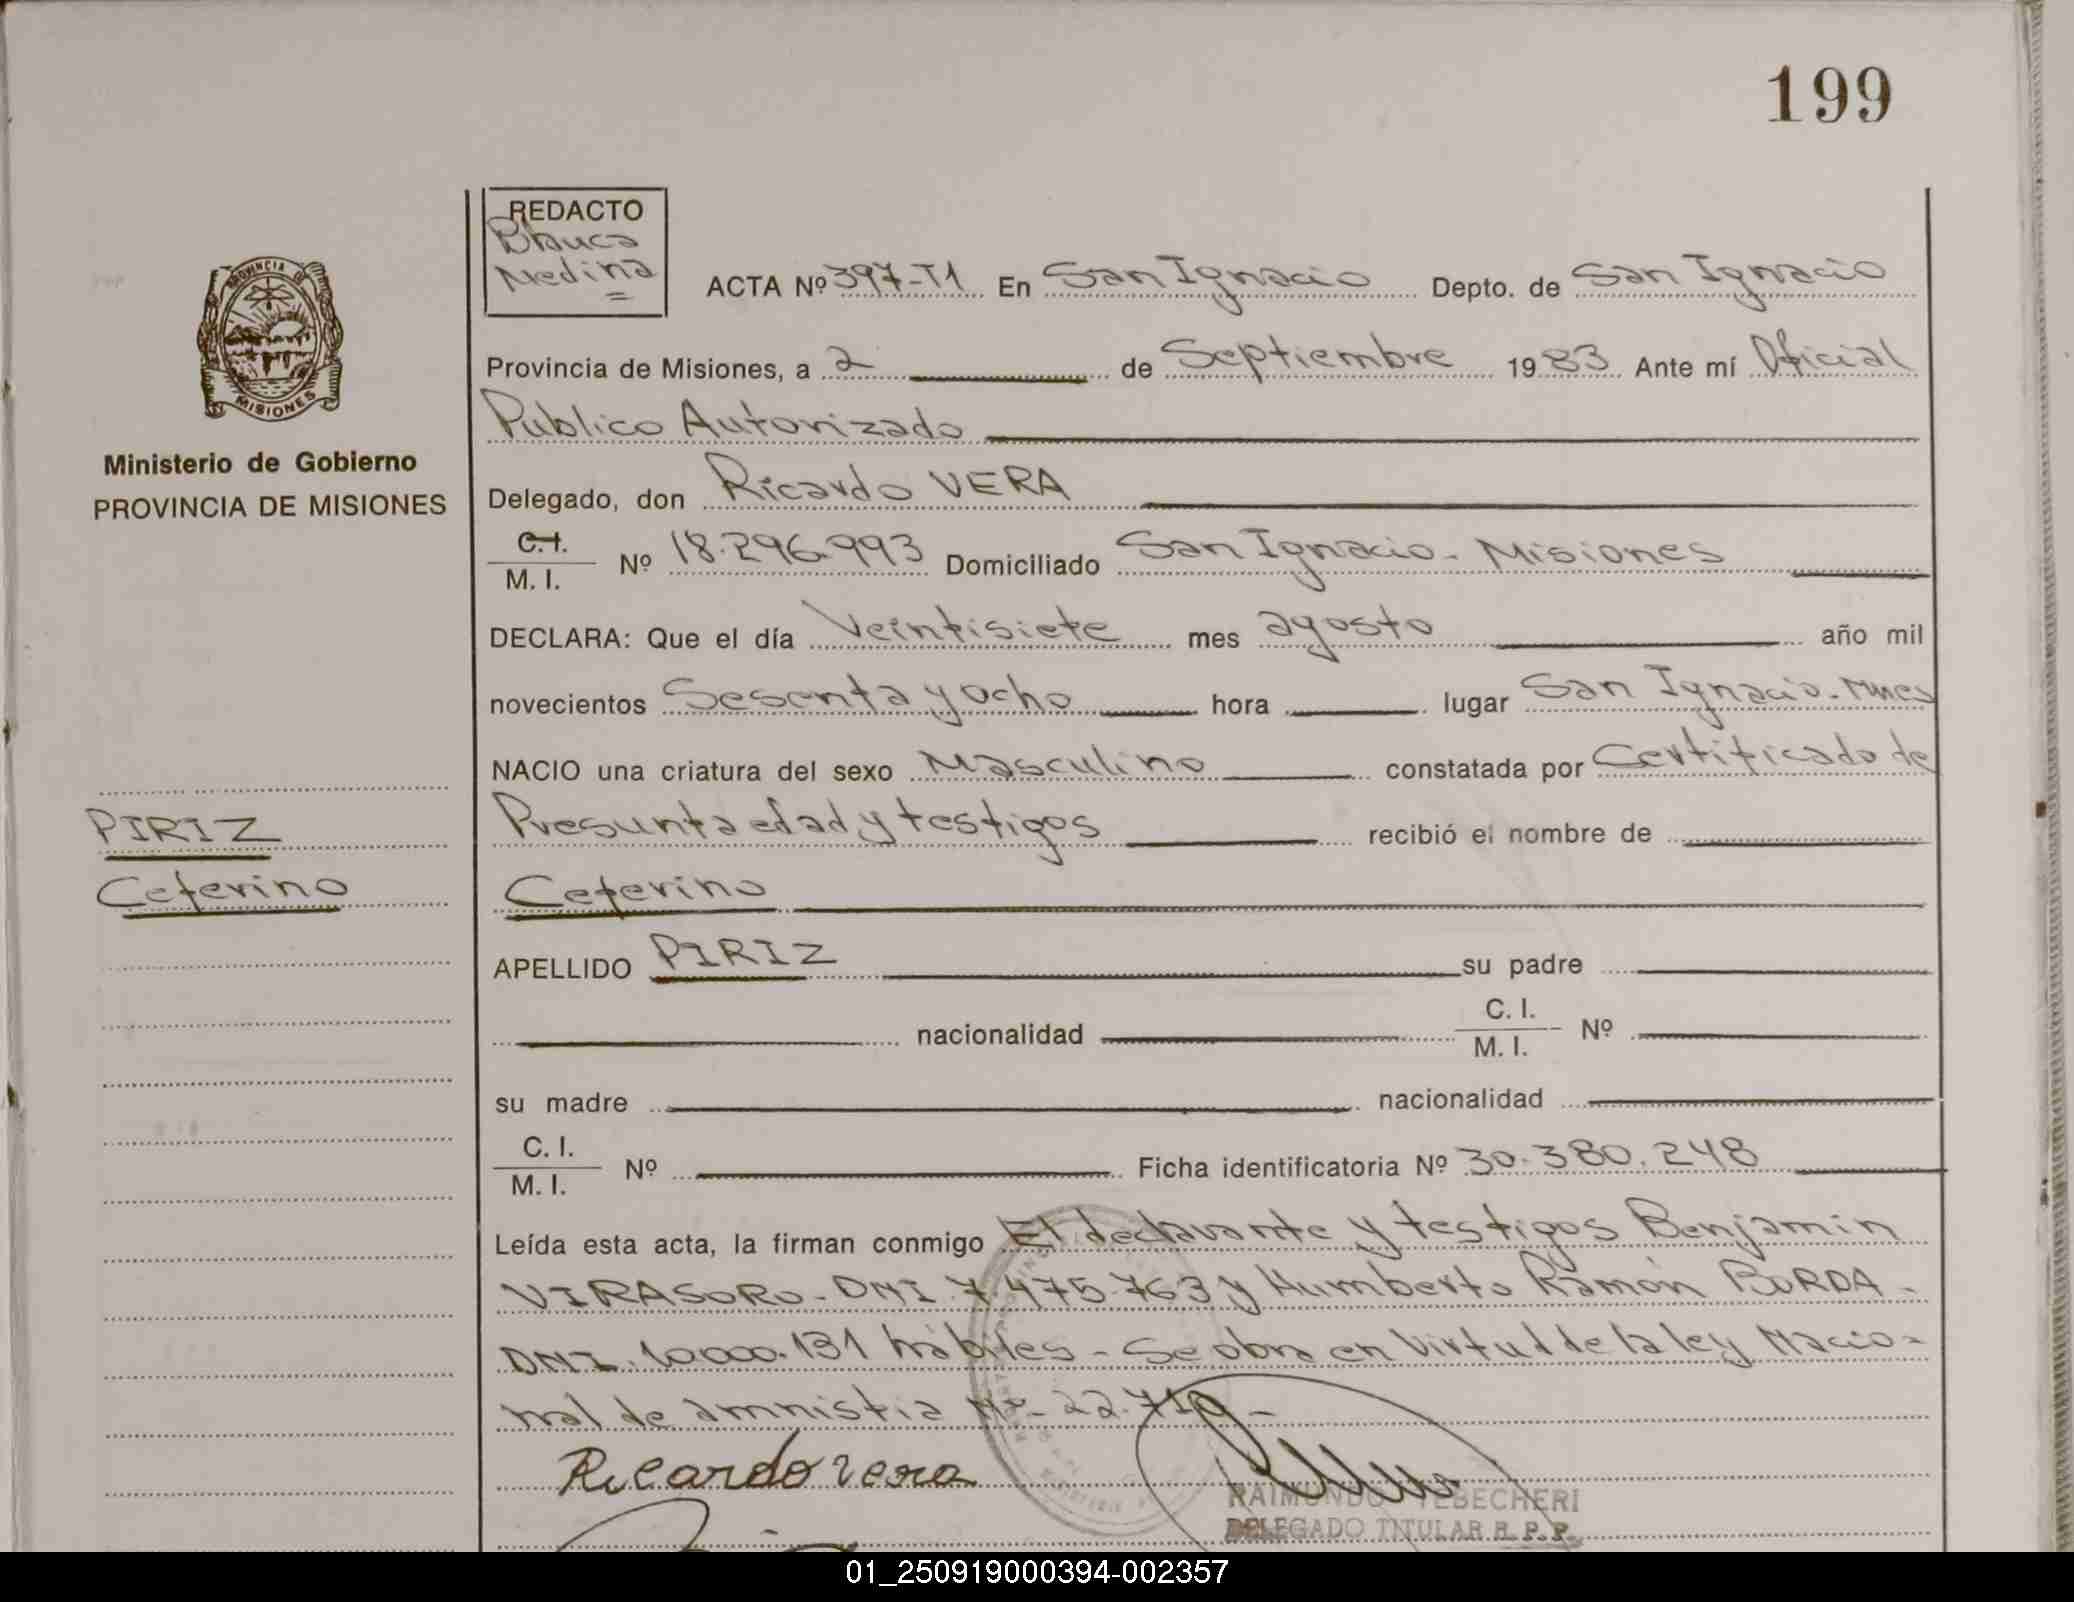 199
REDACTO
Blanca
Medina
ACTA Nº 397-T1 En San Ignacio Depto. de San Ignacio
Provincia de Misiones, a 2 de Septiembre 1983 Ante mí Oficial
Publico Autorizado
Delegado, don Ricardo VERA
C.I.
M. I. Nº 18.296.993 Domiciliado San Ignacio - Misiones
DECLARA: Que el día Veintisiete mes agosto año mil
novecientos Sesenta y ocho hora lugar San Ignacio - Mnes
NACIO una criatura del sexo Masculino constatada por Certificado de
Presunta edad y testigos recibió el nombre de
Ceferino
APELLIDO PIRIZ su padre
nacionalidad C. I.
M. I. Nº
su madre nacionalidad
C. I.
M. I. Nº Ficha identificatoria Nº 30.380.248
Leída esta acta, la firman conmigo El declarante y testigos Benjamin
VIRASORO - DNI 7.475.763 y Humberto Ramón BORDA -
DNI. 10.000.131 hábiles - Se obra en Virtud de la ley Nacio-
nal de amnistia Nº - 22.710 -
Ricardo vera
RAIMUNDO TEBECHERI
DELEGADO TITULAR R. P. P.
PROVINCIA DE
MISIONES
Ministerio de Gobierno
PROVINCIA DE MISIONES
PIRIZ
Ceferino
01_250919000394-002357